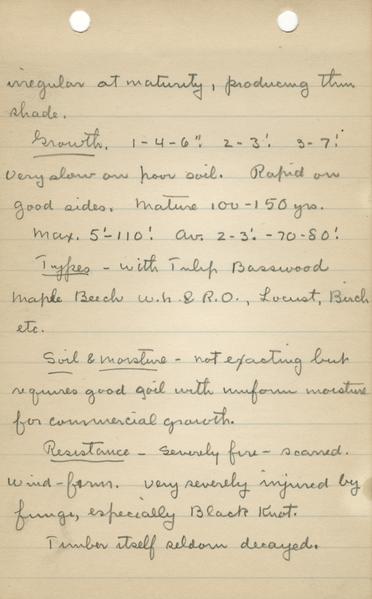 irregular at maturity, producing thin
shade.
Growth. 1-4-6". 2-3'. 3-7'.
Very slow on poor soil. Rapid on
good sides. Mature 100-150 yrs.
Max. 5'-110'. Av. 2-3'.-70-80'.
Types - with Tulip Basswood
Maple Beech W. & R.O., Locust, Birch
etc.
Soil & moisture - not exacting but
requires good soil with uniform moisture
for commercial growth.
Resistance - Severely fire-scarred.
Wind-firm. Very severely injured by
fungi, especially Black Knot.
Timber itself seldom decayed.